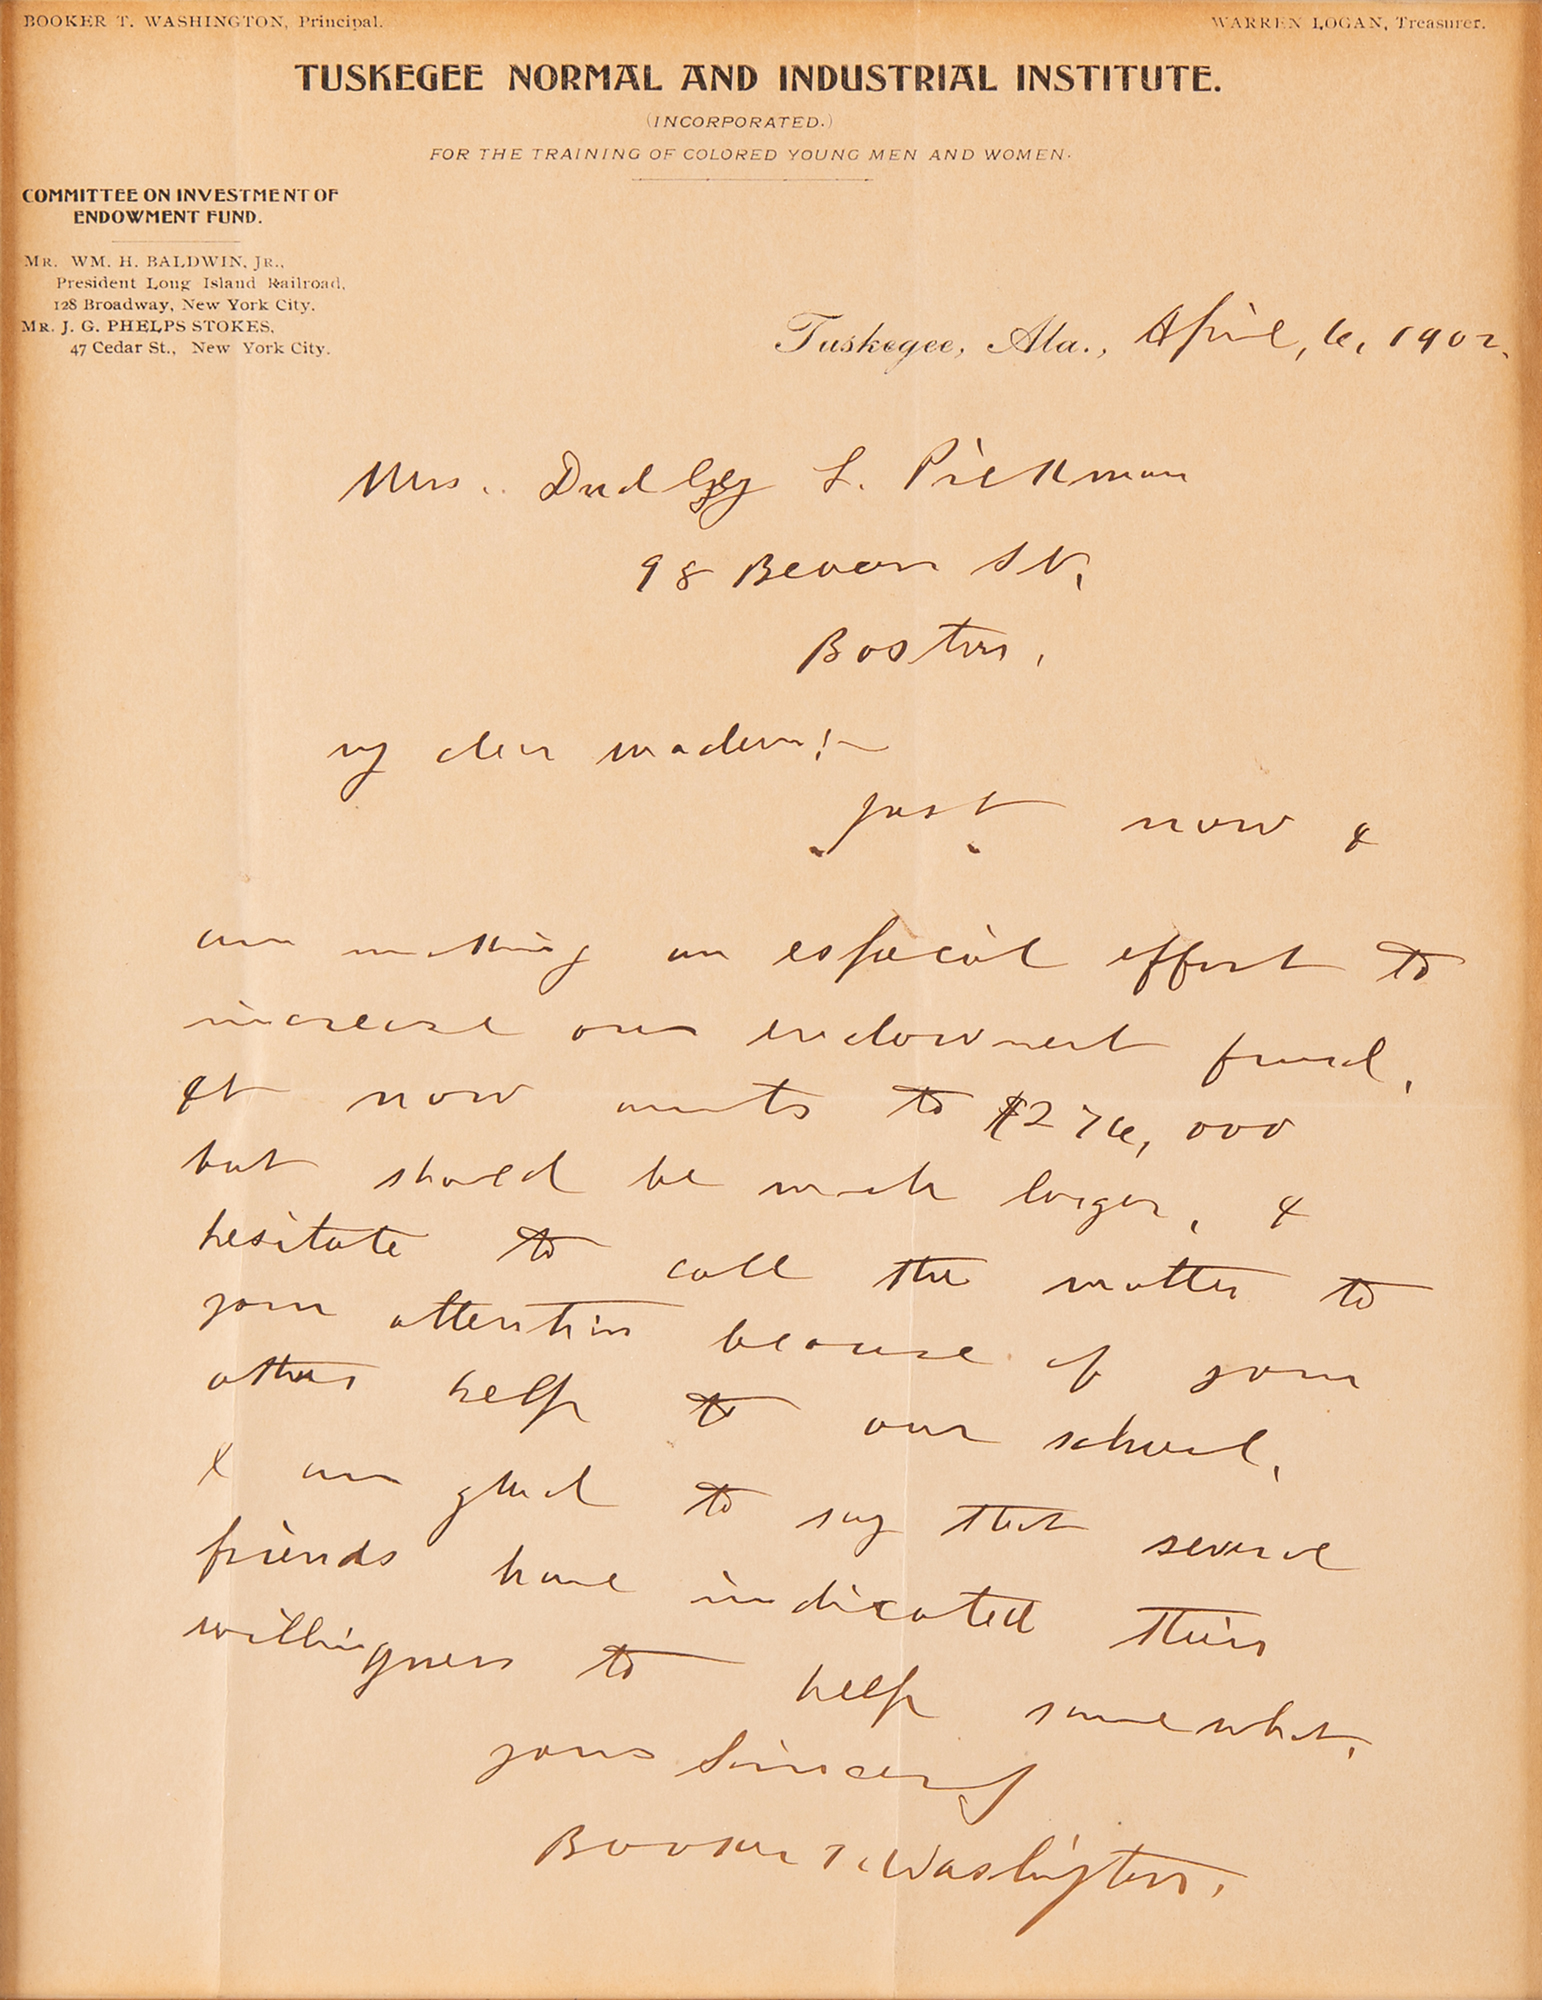 BOOKER T. WASHINGTON, Principal.
WARREN LOGAN, Treasurer.
TUSKEGEE NORMAL AND INDUSTRIAL INSTITUTE.
(INCORPORATED.)
FOR THE TRAINING OF COLORED YOUNG MEN AND WOMEN.
COMMITTEE ON INVESTMENT OF
ENDOWMENT FUND.
MR. WM. H. BALDWIN, JR.,
President Long Island Railroad,
128 Broadway, New York City.
MR. J. G. PHELPS STOKES,
47 Cedar St., New York City.
Tuskegee, Ala., April, 6, 1902.
Mrs. Dudley L. Pickman
98 Beacon St,
Boston.
My dear madam:-
Just now I
am making an especial effort to
increase our endowment fund.
It now amts to $276,000
but should be much larger. I
hesitate to call the matter to
your attention because of your
other help to our school.
I am glad to say that several
friends have indicated their
willingness to help somewhat.
Yours Sincerely
Booker T. Washington.